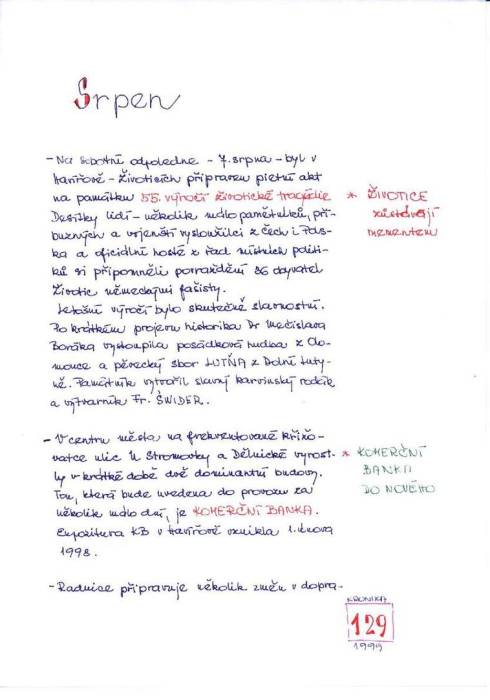 Srpen
- Na sobotní odpoledne - 7. srpna - byl v
Havířově - Životicích připraven pietní akt
na památku 55. výročí životické tragédie
* ŽIVOTICE
zůstávají
mementem
Desítky lidí - několik málo pamětníků, pří-
buzných a vojenští vysloužilci z Čech i Pols-
ka a oficiální hosté z řad místních politi-
ků si připomněli povraždění 36 obyvatel
Životic německými fašisty.
Letošní výročí bylo skutečně slavnostní.
Po krátkém projevu historika Dr Mečislava
Boráka vystoupila posádková hudba z Olo-
mouce a pěvecký sbor LUTŇA z Dolní Luty-
ně. Památník vytvořil slavný karvinský rodák
a výtvarník Fr. ŚWIDER.
- V centru města na frekventované křižo-
vatce ulic U Stromovky a Dělnické vyrost-
ly v krátké době dvě dominantní budovy.
* KOMERČNÍ
BANKA
DO NOVÉHO
Tou, která bude uvedena do provozu za
několik málo dní, je KOMERČNÍ BANKA.
Expozitura KB v Havířově vznikla 1. února
1998.
- Radnice připravuje několik změn v dopra-
KRONIKA
129
1999